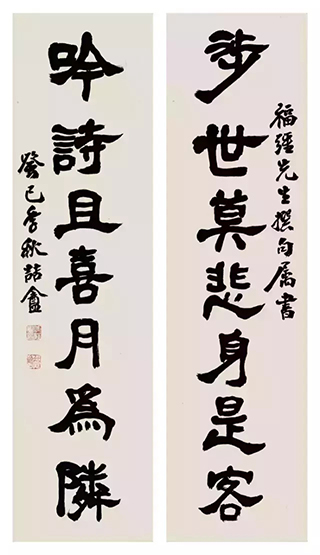 福疆先生撰句属書
涉世莫悲身是客
吟詩且喜月爲隣
癸巳季秋詰盦